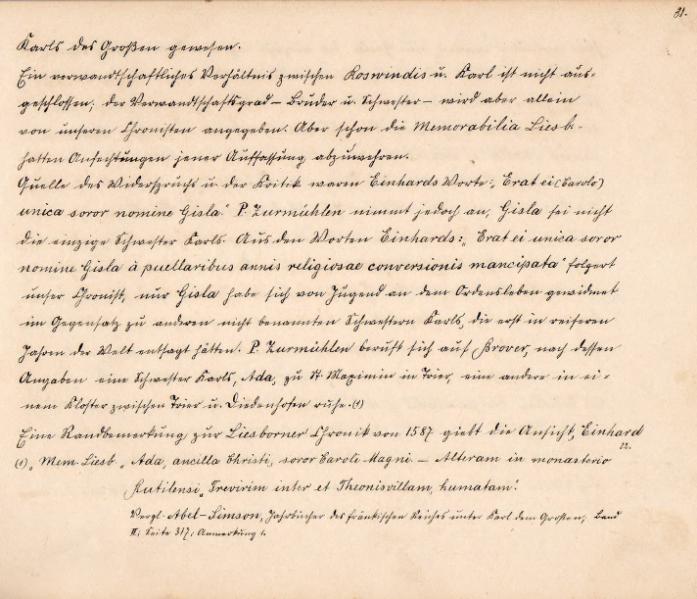 31.
Karls des Großen gewesen.
Ein verwandtschaftliches Verhältnis zwischen Roswindis u. Karl ist nicht aus-
geschlossen; der Verwandtschaftsgrad – Bruder u. Schwester – wird aber allein
von unseren Chronisten angegeben. Aber schon die Memorabilia Liesb.
hatten Anfechtungen jener Auffassung abzuwehren.
Quelle des Widerspruchs u. der Kritik waren Einhards Worte: „Erat ei (Carolo)
unica soror nomine Gisla“. P. Zurmühlen nimmt jedoch an, Gisla sei nicht
die einzige Schwester Karls. Aus den Worten Einhards: „Erat ei unica soror
nomine Gisla à puellaribus annis religiosae conversionis mancipata“ folgert
unser Chronist, nur Gisla habe sich von Jugend an dem Ordensleben gewidmet
im Gegensatz zu anderen nicht benannten Schwestern Karls, die erst in reiferen
Jahren der Welt entsagt hätten. P. Zurmühlen beruft sich auf Brover, nach dessen
Angaben eine Schwester Karls, Ada, zu St. Maximin in Trier, eine andere in ei-
nem Kloster zwischen Trier u. Diedenhofen ruhe. (1)
Eine Randbemerkung zur Liesborner Chronik von 1587 giebt die Ansicht, Einhard
(1) „Mem. Liesb. „Ada, ancilla Christi, soror Caroli Magni. – Alteram in monasterio
Rutilensi, Trevirim inter et Theonisvillam, humatam.“
Vergl. Abel-Simson, Jahrbücher des fränkischen Reiches unter Karl dem Großen, Band
II, Seite 317, Anmerkung 1.